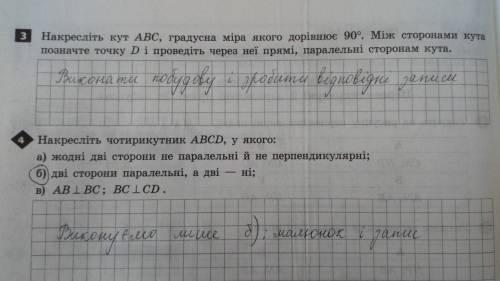 3 Накресліть кут ABC, градусна міра якого дорівнює 90°. Між сторонами кута
позначте точку D і проведіть через неї прямі, паралельні сторонам кута.
Виконати побудову і зробити відповідні записи
4 Накресліть чотирикутник ABCD, у якого:
а) жодні дві сторони не паралельні й не перпендикулярні;
б) дві сторони паралельні, а дві — ні;
в) AB ⊥ BC; BC ⊥ CD.
Виконуємо лише б); малюнок і запис